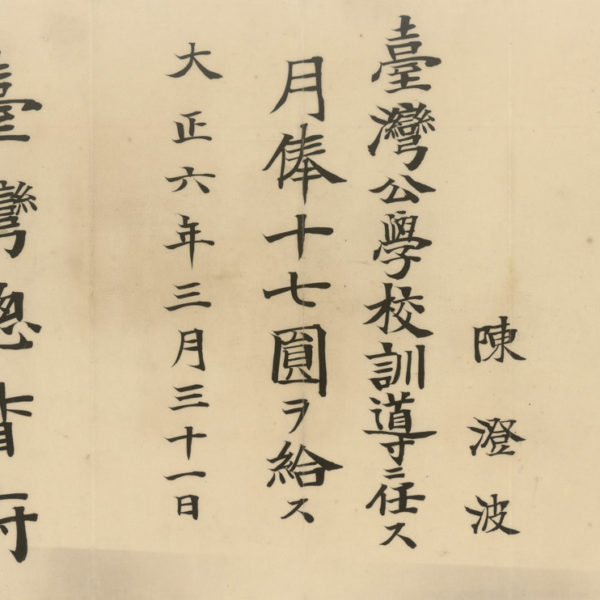 陳澄波
臺灣公學校訓導ニ任ス
月俸十七圓ヲ給ス
大正六年三月三十一日
臺灣總督府